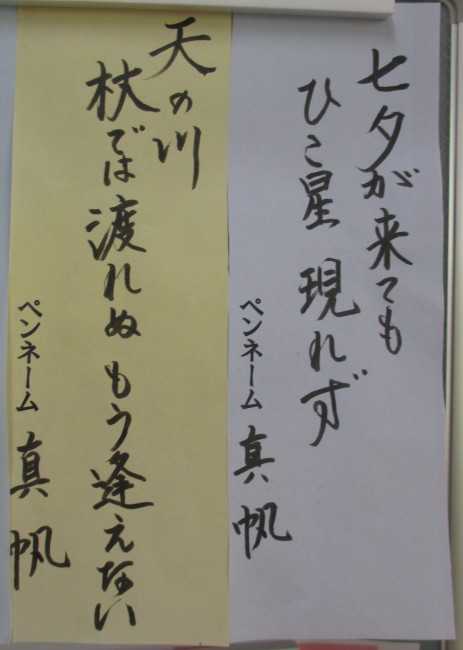 七夕が来ても
ひこ星 現れず
ペンネーム 真帆
天の川
杖では渡れぬ もう逢えない
ペンネーム 真帆